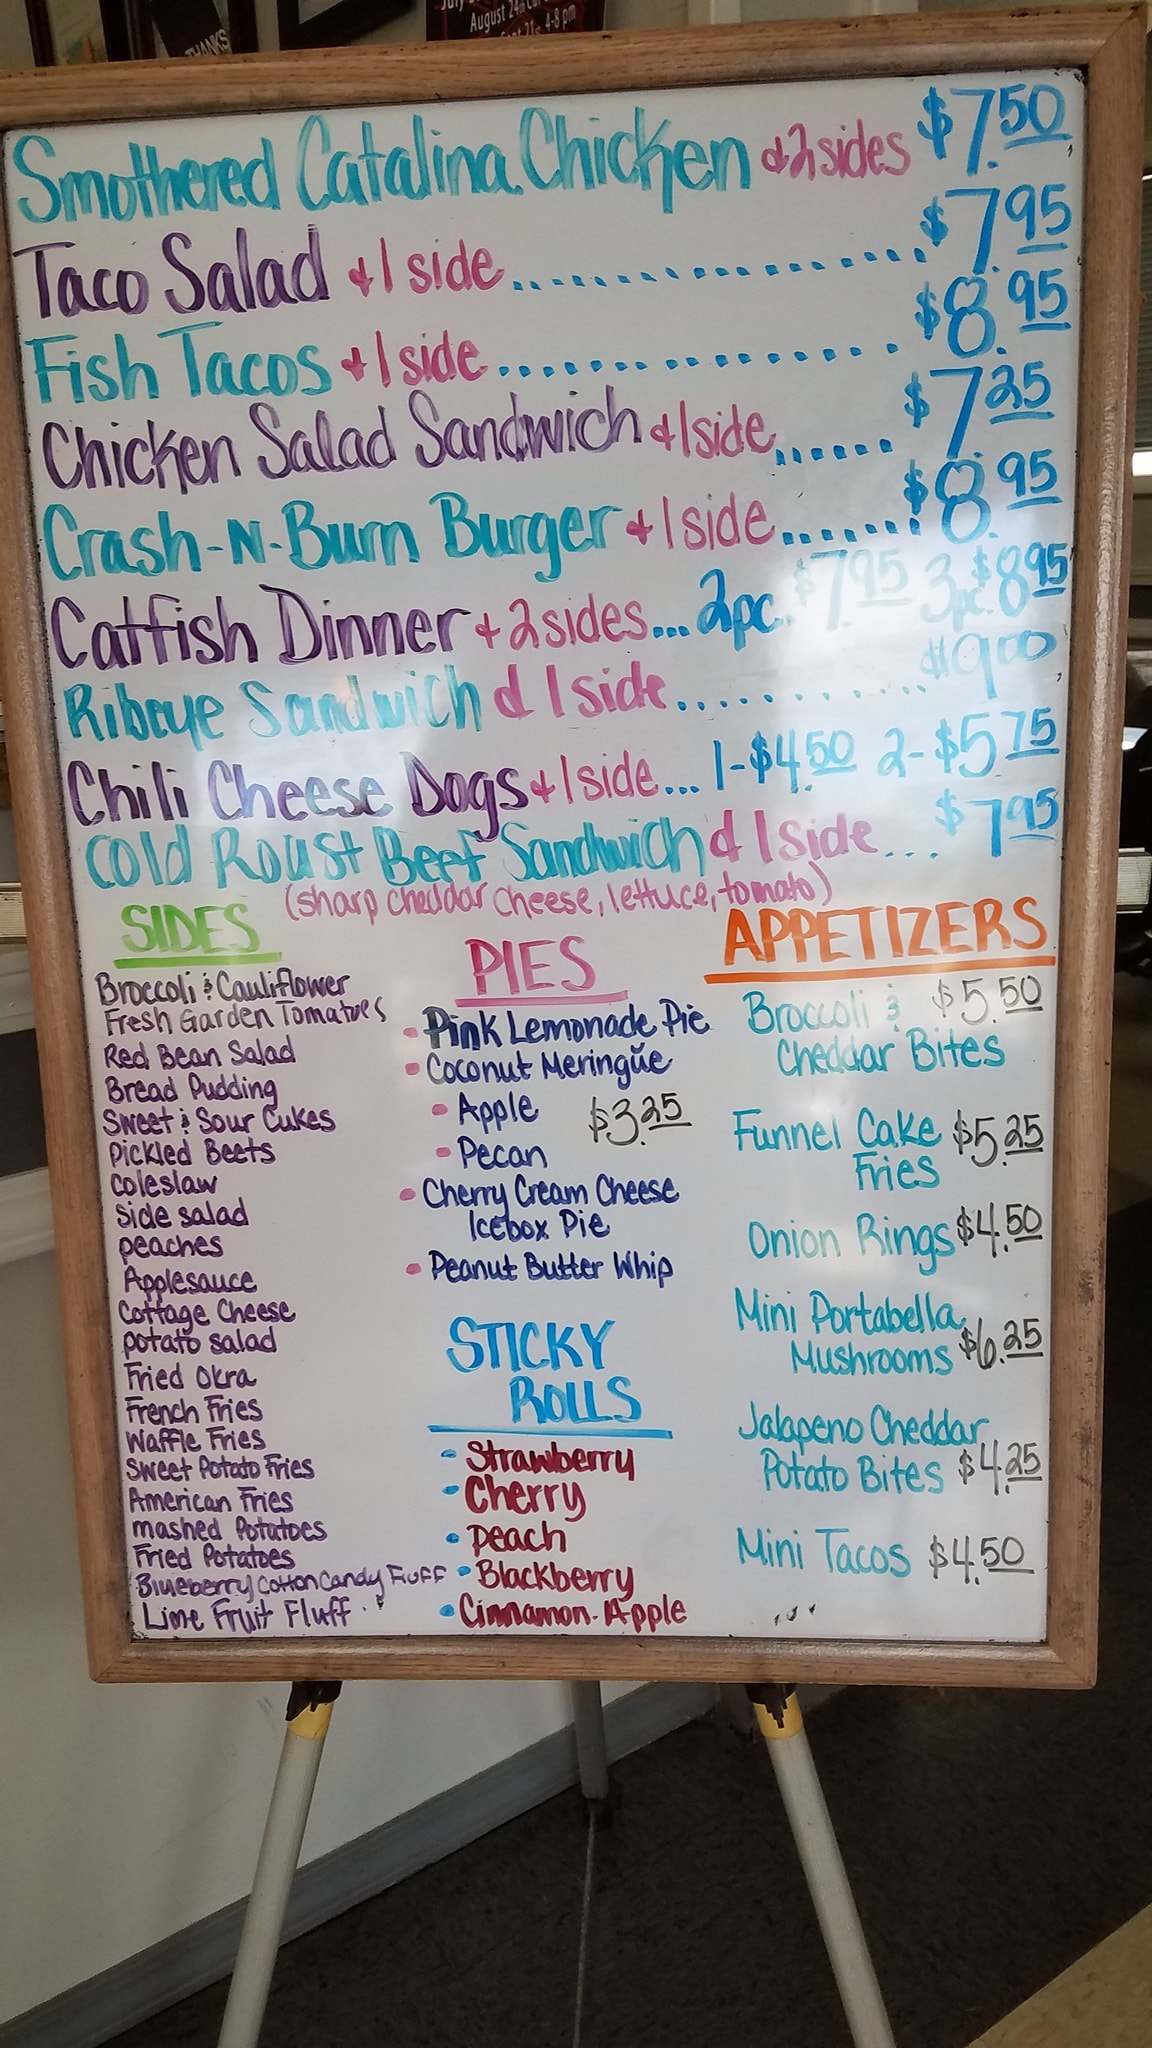 THANKS
August 24th
4-8 pm
Smothered Catalina Chicken & 2 sides $7.50
Taco Salad & 1 side.................. $7.95
Fish Tacos & 1 side................. $8.95
Chicken Salad Sandwich & 1 side....... $7.25
Crash-N-Burn Burger & 1 side....... $8.95
Catfish Dinner & 2 sides... 2pc. $7.95 3pc. $8.95
Ribeye Sandwich & 1 side........... $9.00
Chili Cheese Dogs & 1 side... 1-$4.50 2-$5.75
Cold Roust Beef Sandwich & 1 side.... $7.95
(sharp cheddar cheese, lettuce, tomato)
SIDES
Broccoli & Cauliflower
Fresh Garden Tomatoes
Red Bean Salad
Bread Pudding
Sweet & Sour Cukes
Pickled Beets
Coleslaw
Side salad
peaches
Applesauce
Cottage Cheese
potato salad
Fried Okra
French Fries
Waffle Fries
Sweet Potato Fries
American Fries
mashed Potatoes
Fried Potatoes
Blueberry Cotton Candy Fluff
Lime Fruit Fluff
PIES
• Pink Lemonade Pie
• Coconut Meringue
• Apple $3.25
• Pecan
• Cherry Cream Cheese
Icebox Pie
• Peanut Butter Whip
STICKY
ROLLS
• Strawberry
• Cherry
• Peach
• Blackberry
• Cinnamon-Apple
APPETIZERS
Broccoli & $5.50
Cheddar Bites
Funnel Cake $5.25
Fries
Onion Rings $4.50
Mini Portabella
Mushrooms $6.25
Jalapeno Cheddar
Potato Bites $4.25
Mini Tacos $4.50